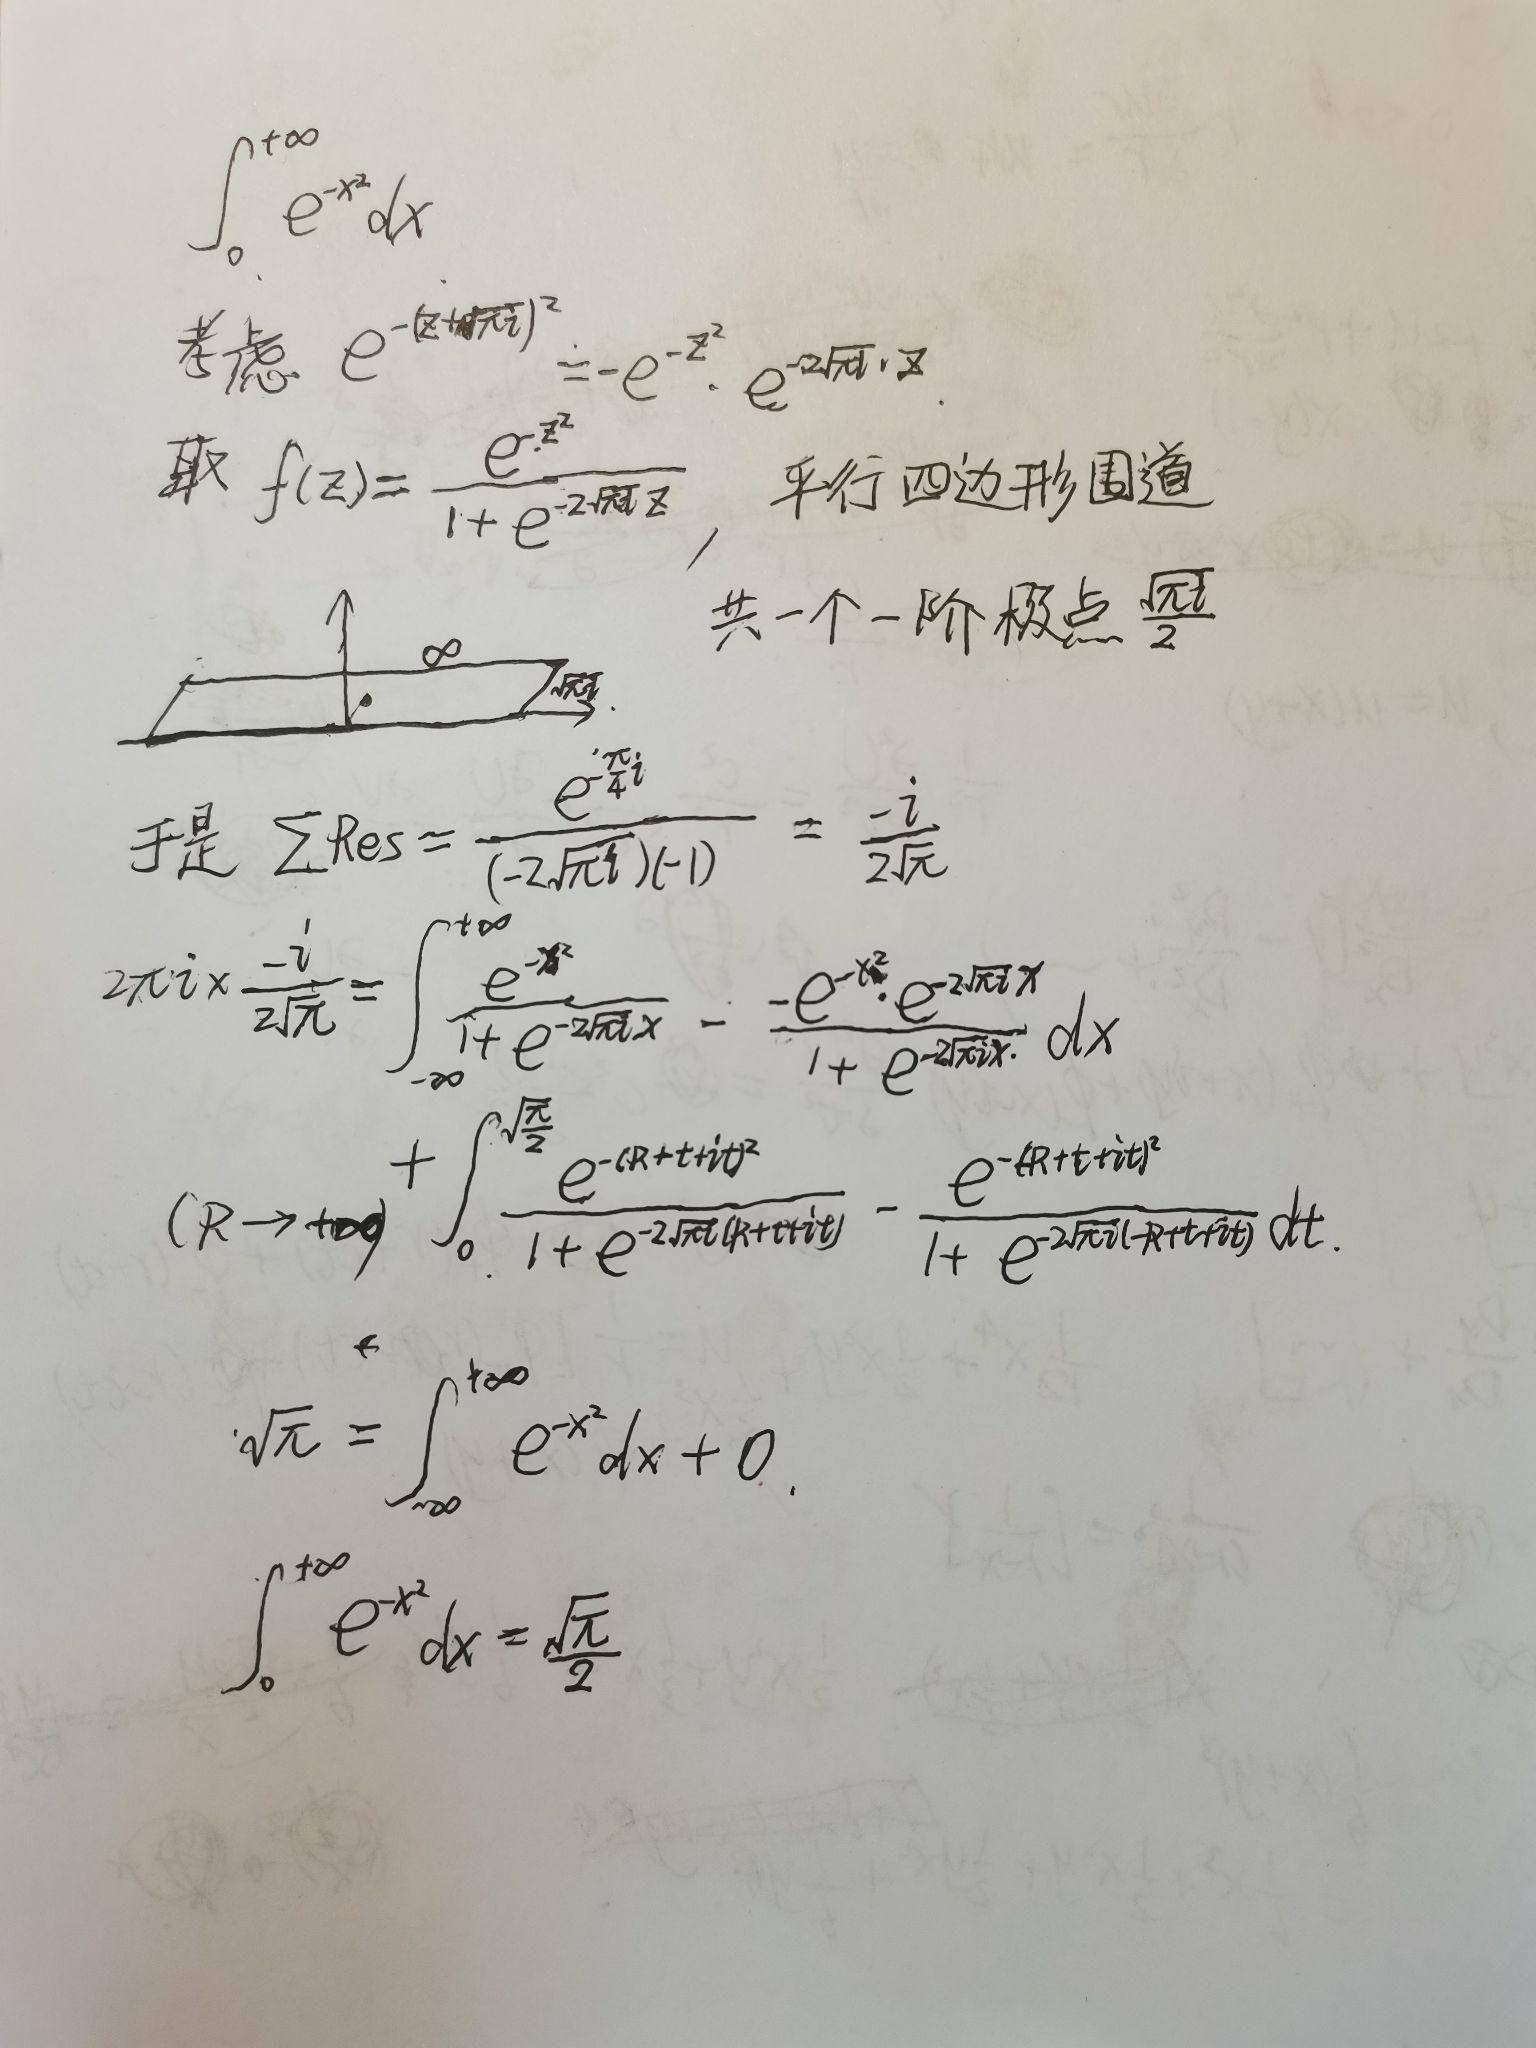 ∫₀^{+∞} e^{-x²} dx
考虑 e^{-(z+√(πi))²} = -e^{-z²}·e^{-2√(πi)·z}.
取 f(z) = e^{-z²} / (1+e^{-2√(πi) z}), 平行四边形围道
共一个一阶极点 √(πi)/2
∞
√(πi)
于是 ∑Res = e^{-π/4 i} / ((-2√(πi))(-1)) = -i / (2√π)
2πi × -i/(2√π) = ∫_{-∞}^{+∞} e^{-x²} / (1+e^{-2√(πi) x}) - (-e^{-x²}·e^{-2√(πi) x}) / (1+e^{-2√(πi) x}) dx
(R→+∞) + ∫₀^{√(π/2)} e^{-(R+t+it)²} / (1+e^{-2√(πi)(R+t+it)}) - e^{-(-R+t+it)²} / (1+e^{-2√(πi)(-R+t+it)}) dt.
√π = ∫_{-∞}^{+∞} e^{-x²} dx + 0.
∫₀^{+∞} e^{-x²} dx = √π/2